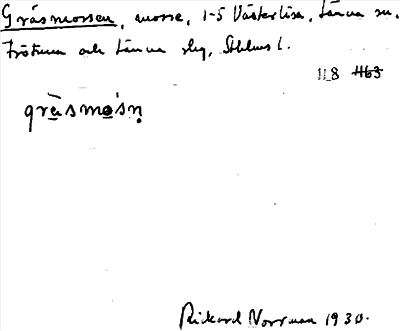 Gräsmossen, mosse, 1-5 Västerlisa, Länna sn.
Frötuna och Länna slg, Sthlms l.
11 8 H63
gräsmosn
Rickard Norrman 1930.